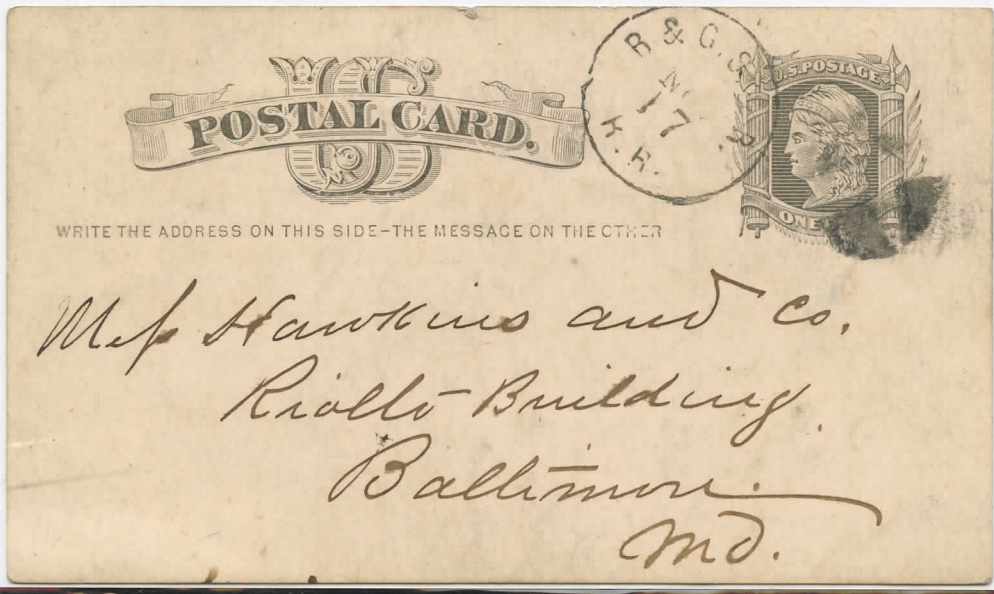 U.S. POSTAGE
US
POSTAL CARD.
R & G.
17
R.R.
ONE
WRITE THE ADDRESS ON THIS SIDE-THE MESSAGE ON THE OTHER
Mess Hawkins and Co.
Riolto Building
Baltimore.
Md.